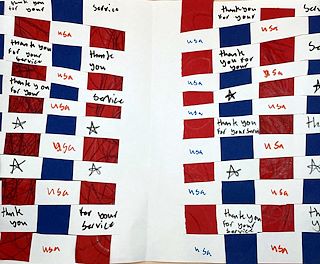 thank you
for your
service
usa
thank you
for your
thank
you
usa
thank you
for your
service
usa
usa
usa
thank
you
for your
service
usa
thank you
for your
usa
thank
you for
your
usa
usa
thank you
for your
usa
usa
usa
thank you
for your
service
usa
usa